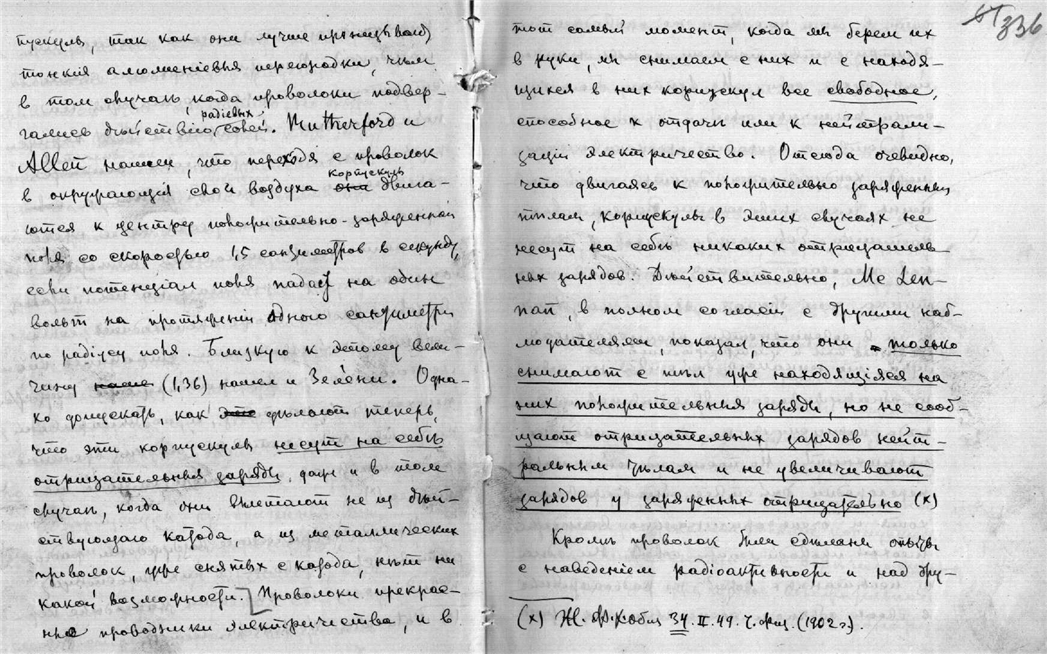 пускулъ, так как они лучше пронизывают
тонкія алюменіевыя перегородки, чѣм
в том случаѣ когда проволоки подвер-
гались дѣйствію радіевых солей. Rutherford и
Allen нашли, что переходя с проволок
в окружающій слой воздуха корпускулы двига-
ются к центру положительно-заряженнаго
поля со скоростью 1,5 сантиметров в секунду,
если потенціал поля падает на один
вольт на протяженіи одного сантиметра
по радіусу поля. Близкую к этому вели-
чину (1,36) нашел и Зелени. Одна-
ко допускать, как дѣлают теперь,
что эти корпускулы несут на себѣ
отрицательныя заряды, даже и в том
случаѣ, когда они вылетают не из дѣй-
ствующаго катода, а из металлических
проволок, уже снятых с катода, нѣт ни
какой возможности. Проволоки прекрас-
ные проводники электричества, и в
336
тот самый момент, когда мы берем их
в руки, мы снимаем с них и с находя-
щихся в них корпускул все свободное,
способное к отдачѣ или к нейтрали-
заціи электричество. Отсюда очевидно,
что двигаясь к положительно заряженным
тѣлам, корпускулы в этих случаях не
несут на себѣ никаких отрицатель-
ных зарядов. Дѣйствительно, Mc Len-
nan, в полном согласіи с другими наб-
людателями, показал, что они только
снимают с тѣл уже находящіяся на
них положительныя заряды, но не сооб-
щают отрицательных зарядов нейт-
ральным тѣлам и не увеличивают
зарядов у заряженных отрицательно (х)
Кромѣ проволок были сдѣланы опыты
с наведеніем радіоактивности и над дру-
(х) Ж. Ф. Х. Общ 34. II. 49. Ч. физ. (1902 г.).